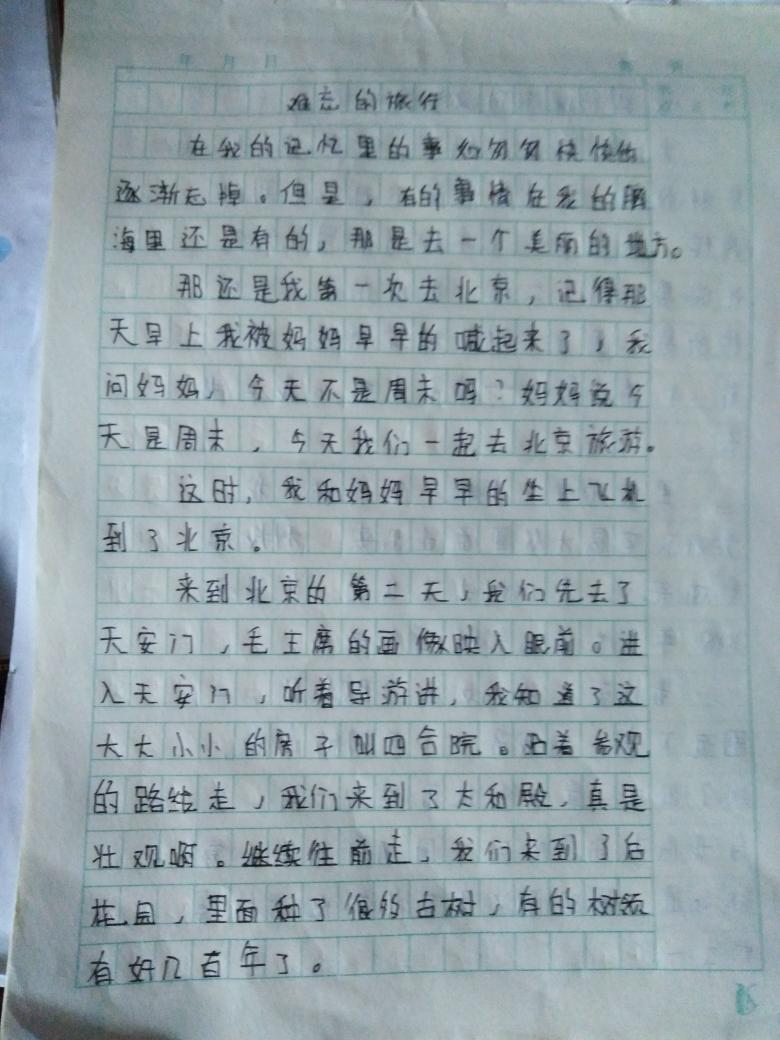 年 月 日
难忘的旅行
在我的记忆里的事如匆匆快快的
逐渐忘掉。但是，有的事情在我的脑
海里还是有的，那是去一个美丽的地方。
那还是我第一次去北京，记得那
天早上我被妈妈早早的喊起来了，我
问妈妈，今天不是周末吗？妈妈说今
天是周末，今天我们一起去北京旅游。
这时，我和妈妈早早的坐上飞机
到了北京。
来到北京的第二天，我们先去了
天安门，毛主席的画像映入眼前。进
入天安门，听着导游讲，我知道了这
大大小小的房子叫四合院。着参观
的路线走，我们来到了太和殿，真是
壮观啊。继续往前走，我们来到了后
花园，里面种了很多古树，有的树
有好几百年了。